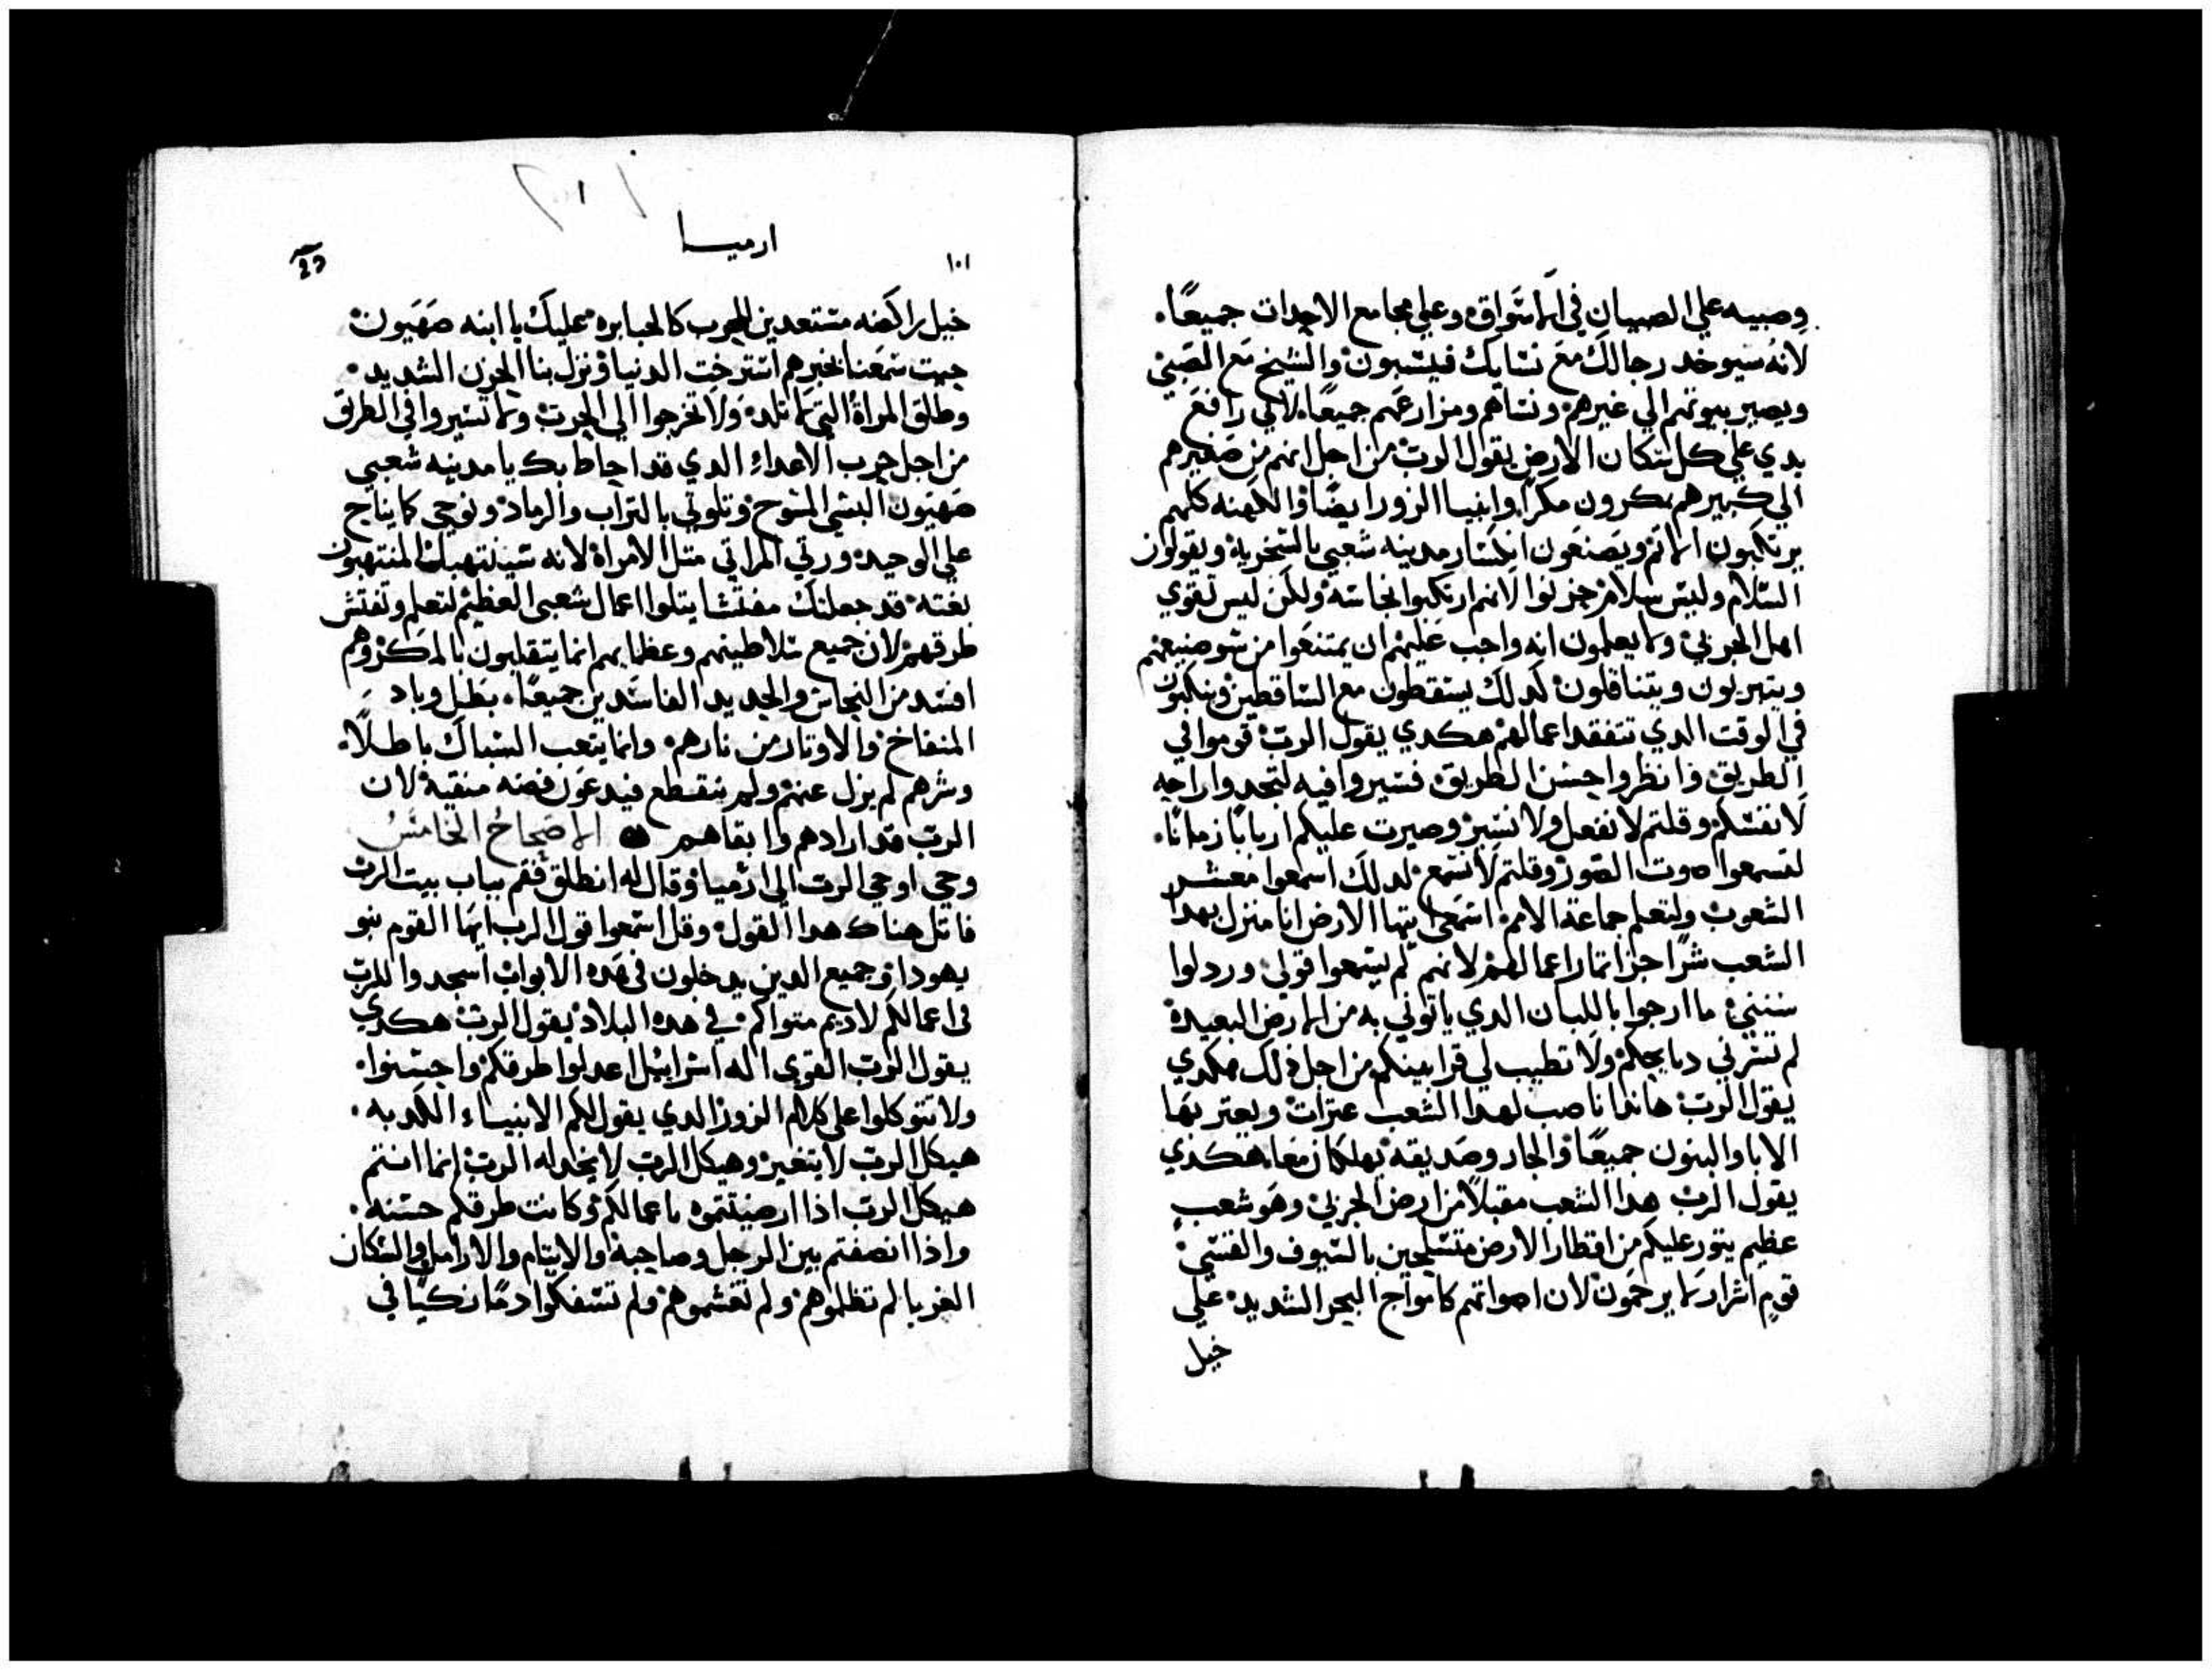 وصبيه علي الصبيان في الاسواق وعلي مجامع الاحداث جميعًا.
لانه سيوخد رجالك مع نسايك فيسبون والشيخ مع الصبي
ويصير بيوتهم الي غيرهم ونساهم ومزارعهم جميعًا لاني رافع
يدي علي كل سكان الارض يقول الرب من اجل انهم من صغيرهم
الي كبيرهم يمكرون مكرًا وانبيا الزور ايضًا والكهنه كلهم
يرتكبون الاثم ويصنعون انكسار مدينه شعبي بالسخرية ويقولون
السلام وليس سلام خزلوا لانهم ارتكبوا نجاسه ولكن ليس تقوي
اهل الخزي ولا يعلمون انه واجب عليهم ان يمتنعوا من سو صنيعهم
ويتهزلون ويتناقلون كدلك يسقطون مع الساقطين وينكبون
في الوقت الدي تتفقد اعمالهم هكدي يقول الرب قوموا في
الطريق وانظروا حسن الطريق فسيروا فيه لتجدوا راحه
لانفسكم وقلتم لا نفعل ولا نسير وصيرت عليكم اربابًا زمانًا.
لتسمعوا صوت الصور وقلتم لا نسمع لدلك اسمعوا معشر
الشعوب ولتعلم جماعة الامم اسمعي ايتها الارض انا منزل بهدا
الشعب شرًا جزا ثمار اعمالهم لانهم لم يسمعوا قولي وردلوا
سنني ما ارجوا باللبان الدي ياتوني به من الارض البعيدة
لم تسرني دبايحكم ولا تطيب لي قرابينكم من اجل ذلك هكدي
يقول الرب هاندا ناصب لهدا الشعب عثرات ويعتر بها
الابا والبنون جميعًا والجار وصديقه يهلكان معا هكدي
يقول الرب هدا الشعب مقبلًا من ارض الجربي وهو شعب
عظيم يثور عليكم من اقطار الارض متسلحين بالسيوف والقسي
قوم اشرار لا يرحمون لان اصواتهم كامواج البحر الشديد علي
خيل
ارميا
١٠١
خيل راكضه مستعدين للحرب كالجبابره عليك يا ابنه صهيون
حيت سمعنا بخبرهم استرخت الدنيا ونزل بنا الحزن الشديد.
وطلق المراة التي تلد ولا تخرجوا الي الحرت ولا تسيروا في الطرق
من اجل حرب الاعداء الدي قد احاط بك يا مدينه شعبي
صهيون البسي المسوح وتلوتي بالتراب والرماد ونوحي كما يناح
علي الوحيد ورتي المراتي متل الامراة لانه سينتهبك المنتهبون
بغته قد جعلتك مفتشا يتلوا اعمال شعبي العظيم لتعلم وتفتش
طرقهم لان جميع سلاطينهم وعظمايهم انما يتقلبون بالمكر وهم
افسد من النحاس والحديد الفاسدين جميعًا. بطل وباد
المنفاخ والاوتار من نارهم وانما يتعب السباك باطلًا.
وشرهم لم يزل عنهم ولم ينقطع فيدعون فضه منقية لان
الرب قد ارادهم وابقاهم الاصحاح الخامس
وحي اوحي الرب الي ارميا وقال له انطلق فقم بباب بيت الرب
فاتل هناك هدا القول وقل اسمعوا قول الرب ايها القوم بنو
يهودا وجميع الدين يدخلون في هده الابواب اسجدوا للرب
في اعمالكم لاديم متواكم في هده البلاد يقول الرب هكدي
يقول الرب القوي اله اسراييل اعدلوا طرقكم واحسنوا.
ولا تتوكلوا علي كلام الزور الدي يقول لكم الانبياء الكدبه.
هيكل الرب لا يتغير وهيكل الرب لا يخدله الرب انما انتم
هيكل الرب اذا ارضيتموه باعمالكم وكانت طرقكم حسنه.
واذا انصفتم بين الرجل وصاحبه والايتام والارامل والسكان
الغربا لم تظلموهم ولم تغشموهم ولم تسفكوا دمًا زكيًا في